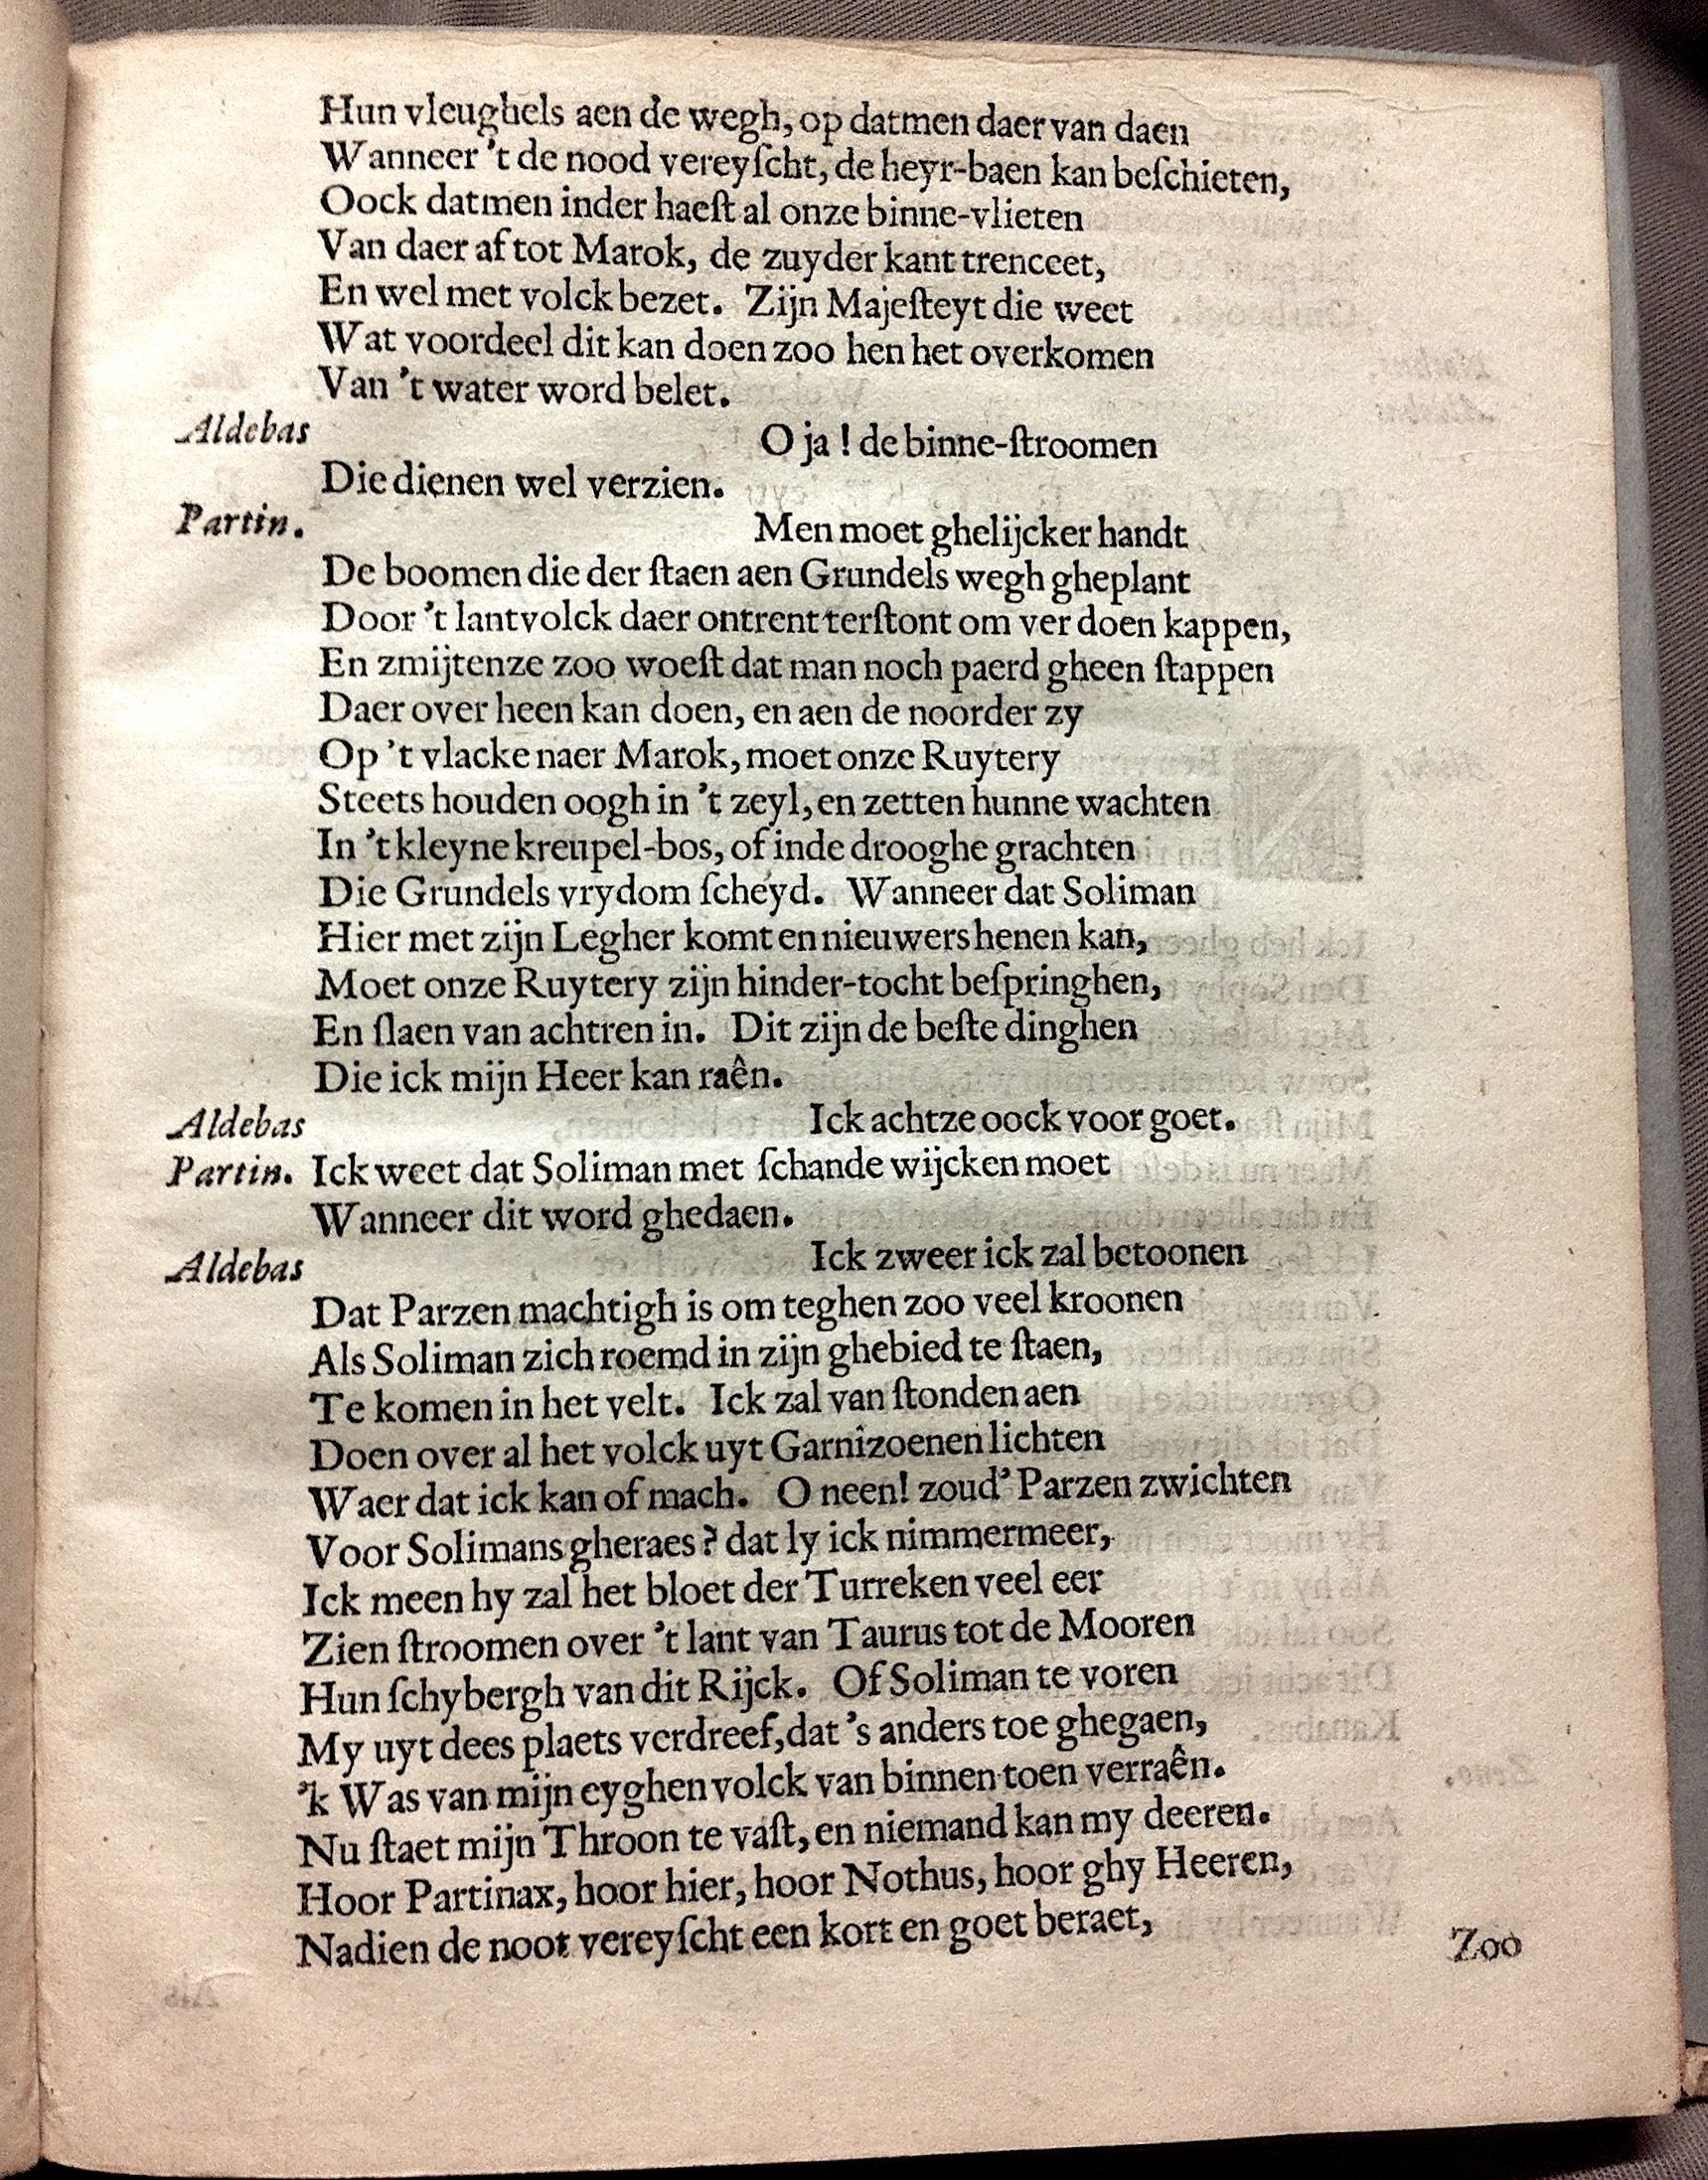 Hun vleughels aen de wegh, op datmen daer van daen
Wanneer 't de nood vereyſcht, de heyr-baen kan beſchieten,
Oock datmen inder haeſt al onze binne-vlieten
Van daer af tot Marok, de zuyder kant trenceet,
En wel met volck bezet. Zijn Majeſteyt die weet
Wat voordeel dit kan doen zoo hen het overkomen
Van 't water word belet.
Aldebas O ja! de binne-ſtroomen
Die dienen wel verzien.
Partin. Men moet ghelijcker handt
De boomen die der ſtaen aen Grundels wegh gheplant
Door 't lantvolck daer ontrent terſtont om ver doen kappen,
En zmijtenze zoo woeſt dat man noch paerd gheen ſtappen
Daer over heen kan doen, en aen de noorder zy
Op 't vlacke naer Marok, moet onze Ruytery
Steets houden oogh in 't zeyl, en zetten hunne wachten
In 't kleyne kreupel-bos, of inde drooghe grachten
Die Grundels vrydom ſcheyd. Wanneer dat Soliman
Hier met zijn Legher komt en nieuwers henen kan,
Moet onze Ruytery zijn hinder-tocht beſpringhen,
En ſlaen van achtren in. Dit zijn de beſte dinghen
Die ick mijn Heer kan raên.
Aldebas Ick achtze oock voor goet.
Partin. Ick weet dat Soliman met ſchande wijcken moet
Wanneer dit word ghedaen.
Aldebas Ick zweer ick zal betoonen
Dat Parzen machtigh is om teghen zoo veel kroonen
Als Soliman zich roemd in zijn ghebied te ſtaen,
Te komen in het velt. Ick zal van ſtonden aen
Doen over al het volck uyt Garnizoenen lichten
Waer dat ick kan of mach. O neen! zoud' Parzen zwichten
Voor Solimans gheraes? dat ly ick nimmermeer,
Ick meen hy zal het bloet der Turreken veel eer
Zien ſtroomen over 't lant van Taurus tot de Mooren
Hun ſchybergh van dit Rijck. Of Soliman te voren
My uyt dees plaets verdreef, dat 's anders toe ghegaen,
'k Was van mijn eyghen volck van binnen toen verraên.
Nu ſtaet mijn Throon te vaſt, en niemand kan my deeren.
Hoor Partinax, hoor hier, hoor Nothus, hoor ghy Heeren,
Nadien de noot vereyſcht een kort en goet beraet,
Zoo